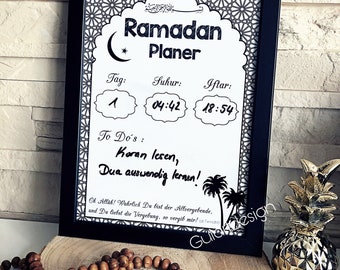 Ramadan
Planer
Tag: Suhur: Iftar:
1 04:42 18:54
To Do's :
Koran lesen,
Dua auswendig lernen!
Oh Allah! Wahrlich Du bist der Allvergebende,
und Du liebst die Vergebung, so vergib mir!
GulanDesign